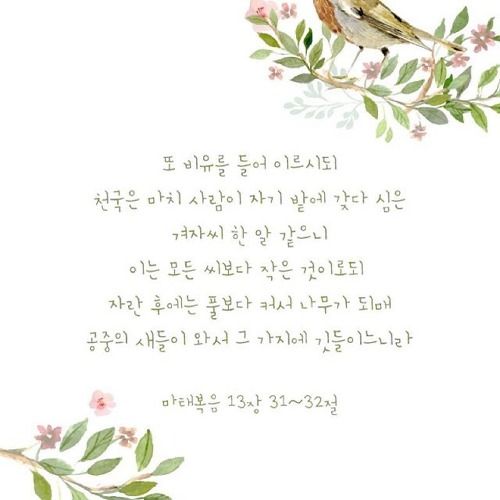 또 비유를 들어 이르시되
천국은 마치 사람이 자기 밭에 갖다 심은
겨자씨 한 알 같으니
이는 모든 씨보다 작은 것이로되
자란 후에는 풀보다 커서 나무가 되매
공중의 새들이 와서 그 가지에 깃들이느니라
마태복음 13장 31~32절